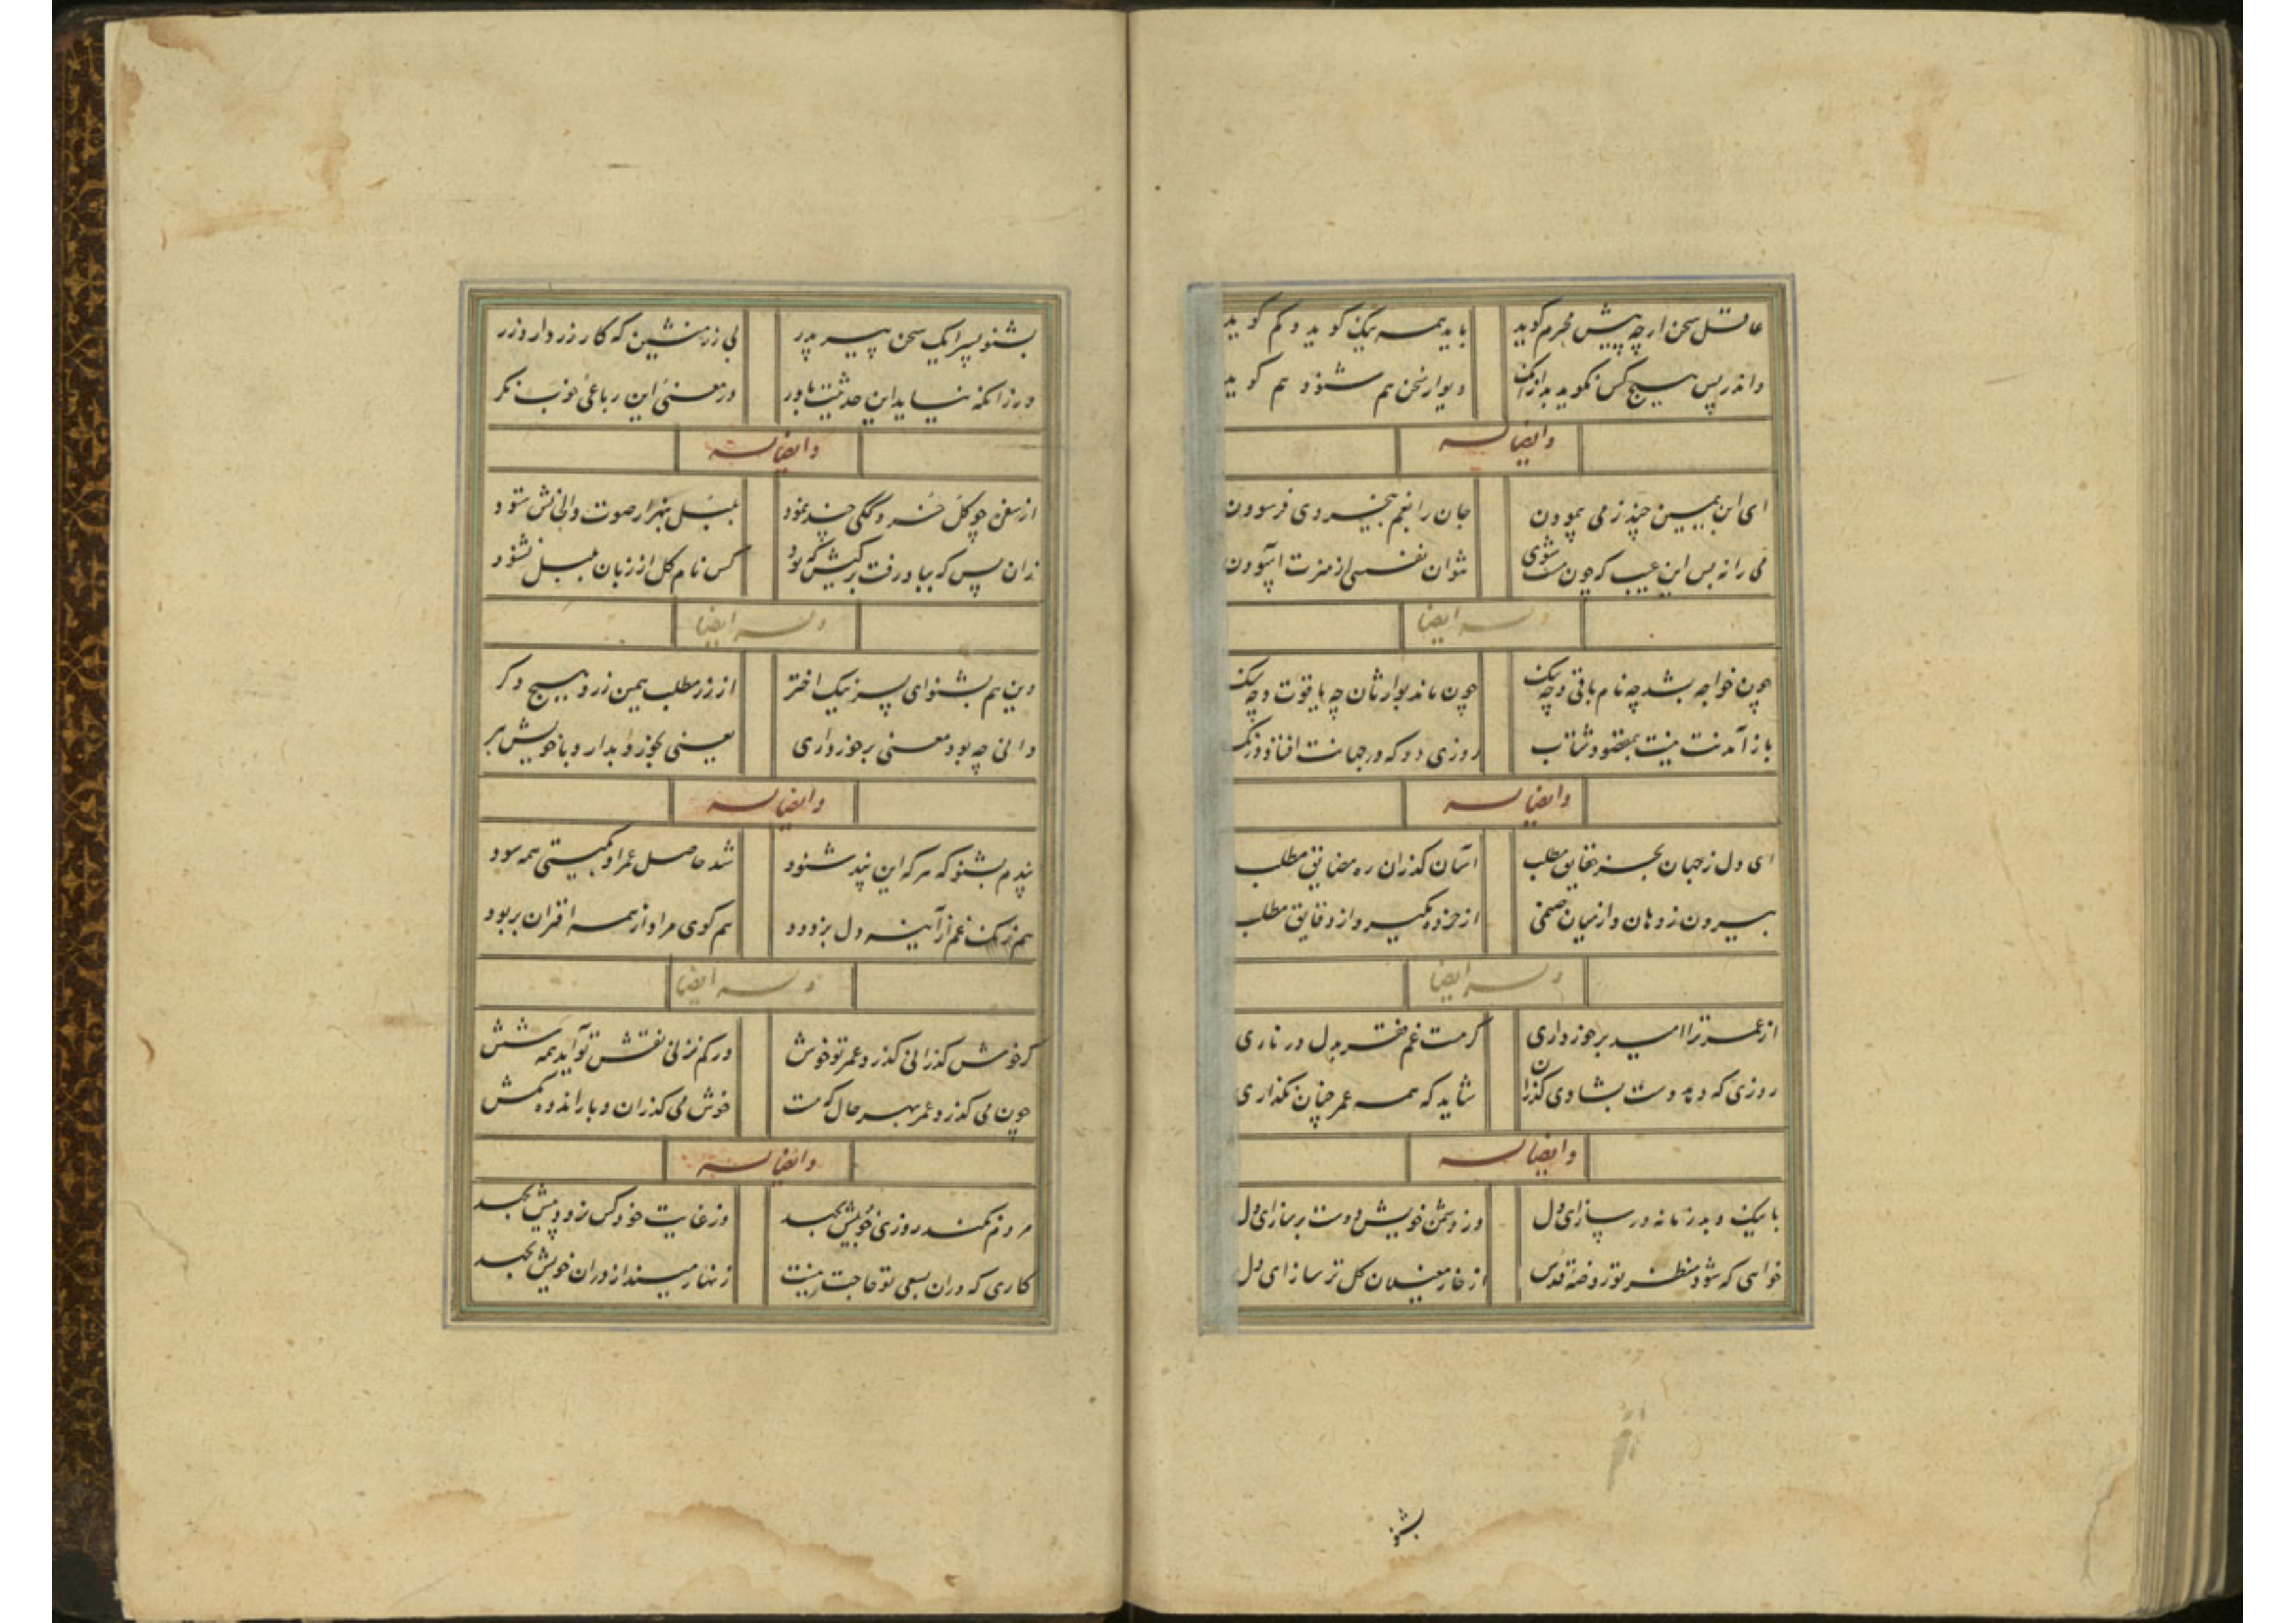 عاقل سخن ار چه پیش محرم گوید باید همه نیک گوید و کم گوید
واندر پس هیچ کس نگوید بد از آنک دیوار سخن هم شنود هم گوید
وایضا له
ای ابن یمین چند ز می پیمودن جان را بغم بیخردی فرسودن
می را نه بس این عیب که چون مست شوی نتوان نفسی از منزت آسودن
وله ایضا
چون خواجه بشد چه نام باقی و چه ننگ چون ماند بوارثان چه یاقوت و چه سنگ
باز آمدنت نیست بمقصود شتاب روزی دو که در جهانت افتاد درنگ
وایضا له
ای دل ز جهان بجز حقایق مطلب آسان گذران ره مضایق مطلب
بیرون ز دهان و از میان صنمی از خرده مگیر و از دقایق مطلب
وله ایضا
از عمر ترا امید برخورداری گر هست غم مخور بدل در ناری
روزی که دهد دست بشادی گذران شاید که همه عمر چنان نگذاری
وایضا له
با نیک و بد زمانه در ساز ای دل وز دشمن خویش دوست بر ساز ای دل
خواهی که شود منظر تو روضه قدس از خار مغیلان گل تر ساز ای دل
بشنو
بشنو پسرا یک سخن پیر پدر بی زر منشین که کار زر دارد زر
ور زانکه نیاید این حدیثت باور در معنی این رباعی خوب نگر
وایضا له
از سفره چو گل خرده گکی چند نمود بلبل بهزار صوت و الحانش ستود
زان پس که بباد رفت برگیش که بود کس نام گل از زبان بلبل نشنود
وله ایضا
وین هم بشنو ای پسر نیک اختر از زر مطلب همین زر و هیچ دگر
دانی چه بود معنی برخورداری یعنی بخور و بدار و با خویش ببر
وایضا له
پندم بشنو که هر که این پند شنود شد حاصل عمر او بگیتی همه سود
هم زنگ غم از آینه دل بزدود هم گوی مراد از همه اقران بربود
وله ایضا
گر خوش گذرانی گذرد عمر تو خوش ور کم نزنی نقش تو آید همه شش
چون می گذرد عمر بهر حال که هست خوش می گذران و بار اندوه مکش
وایضا له
مردم نکند روزی خود بیش بجهد وز غایت خود کس نرود پیش بجهد
کاری که در آن بسعی تو حاجت نیست زنهار میندازد ران خویش بجهد